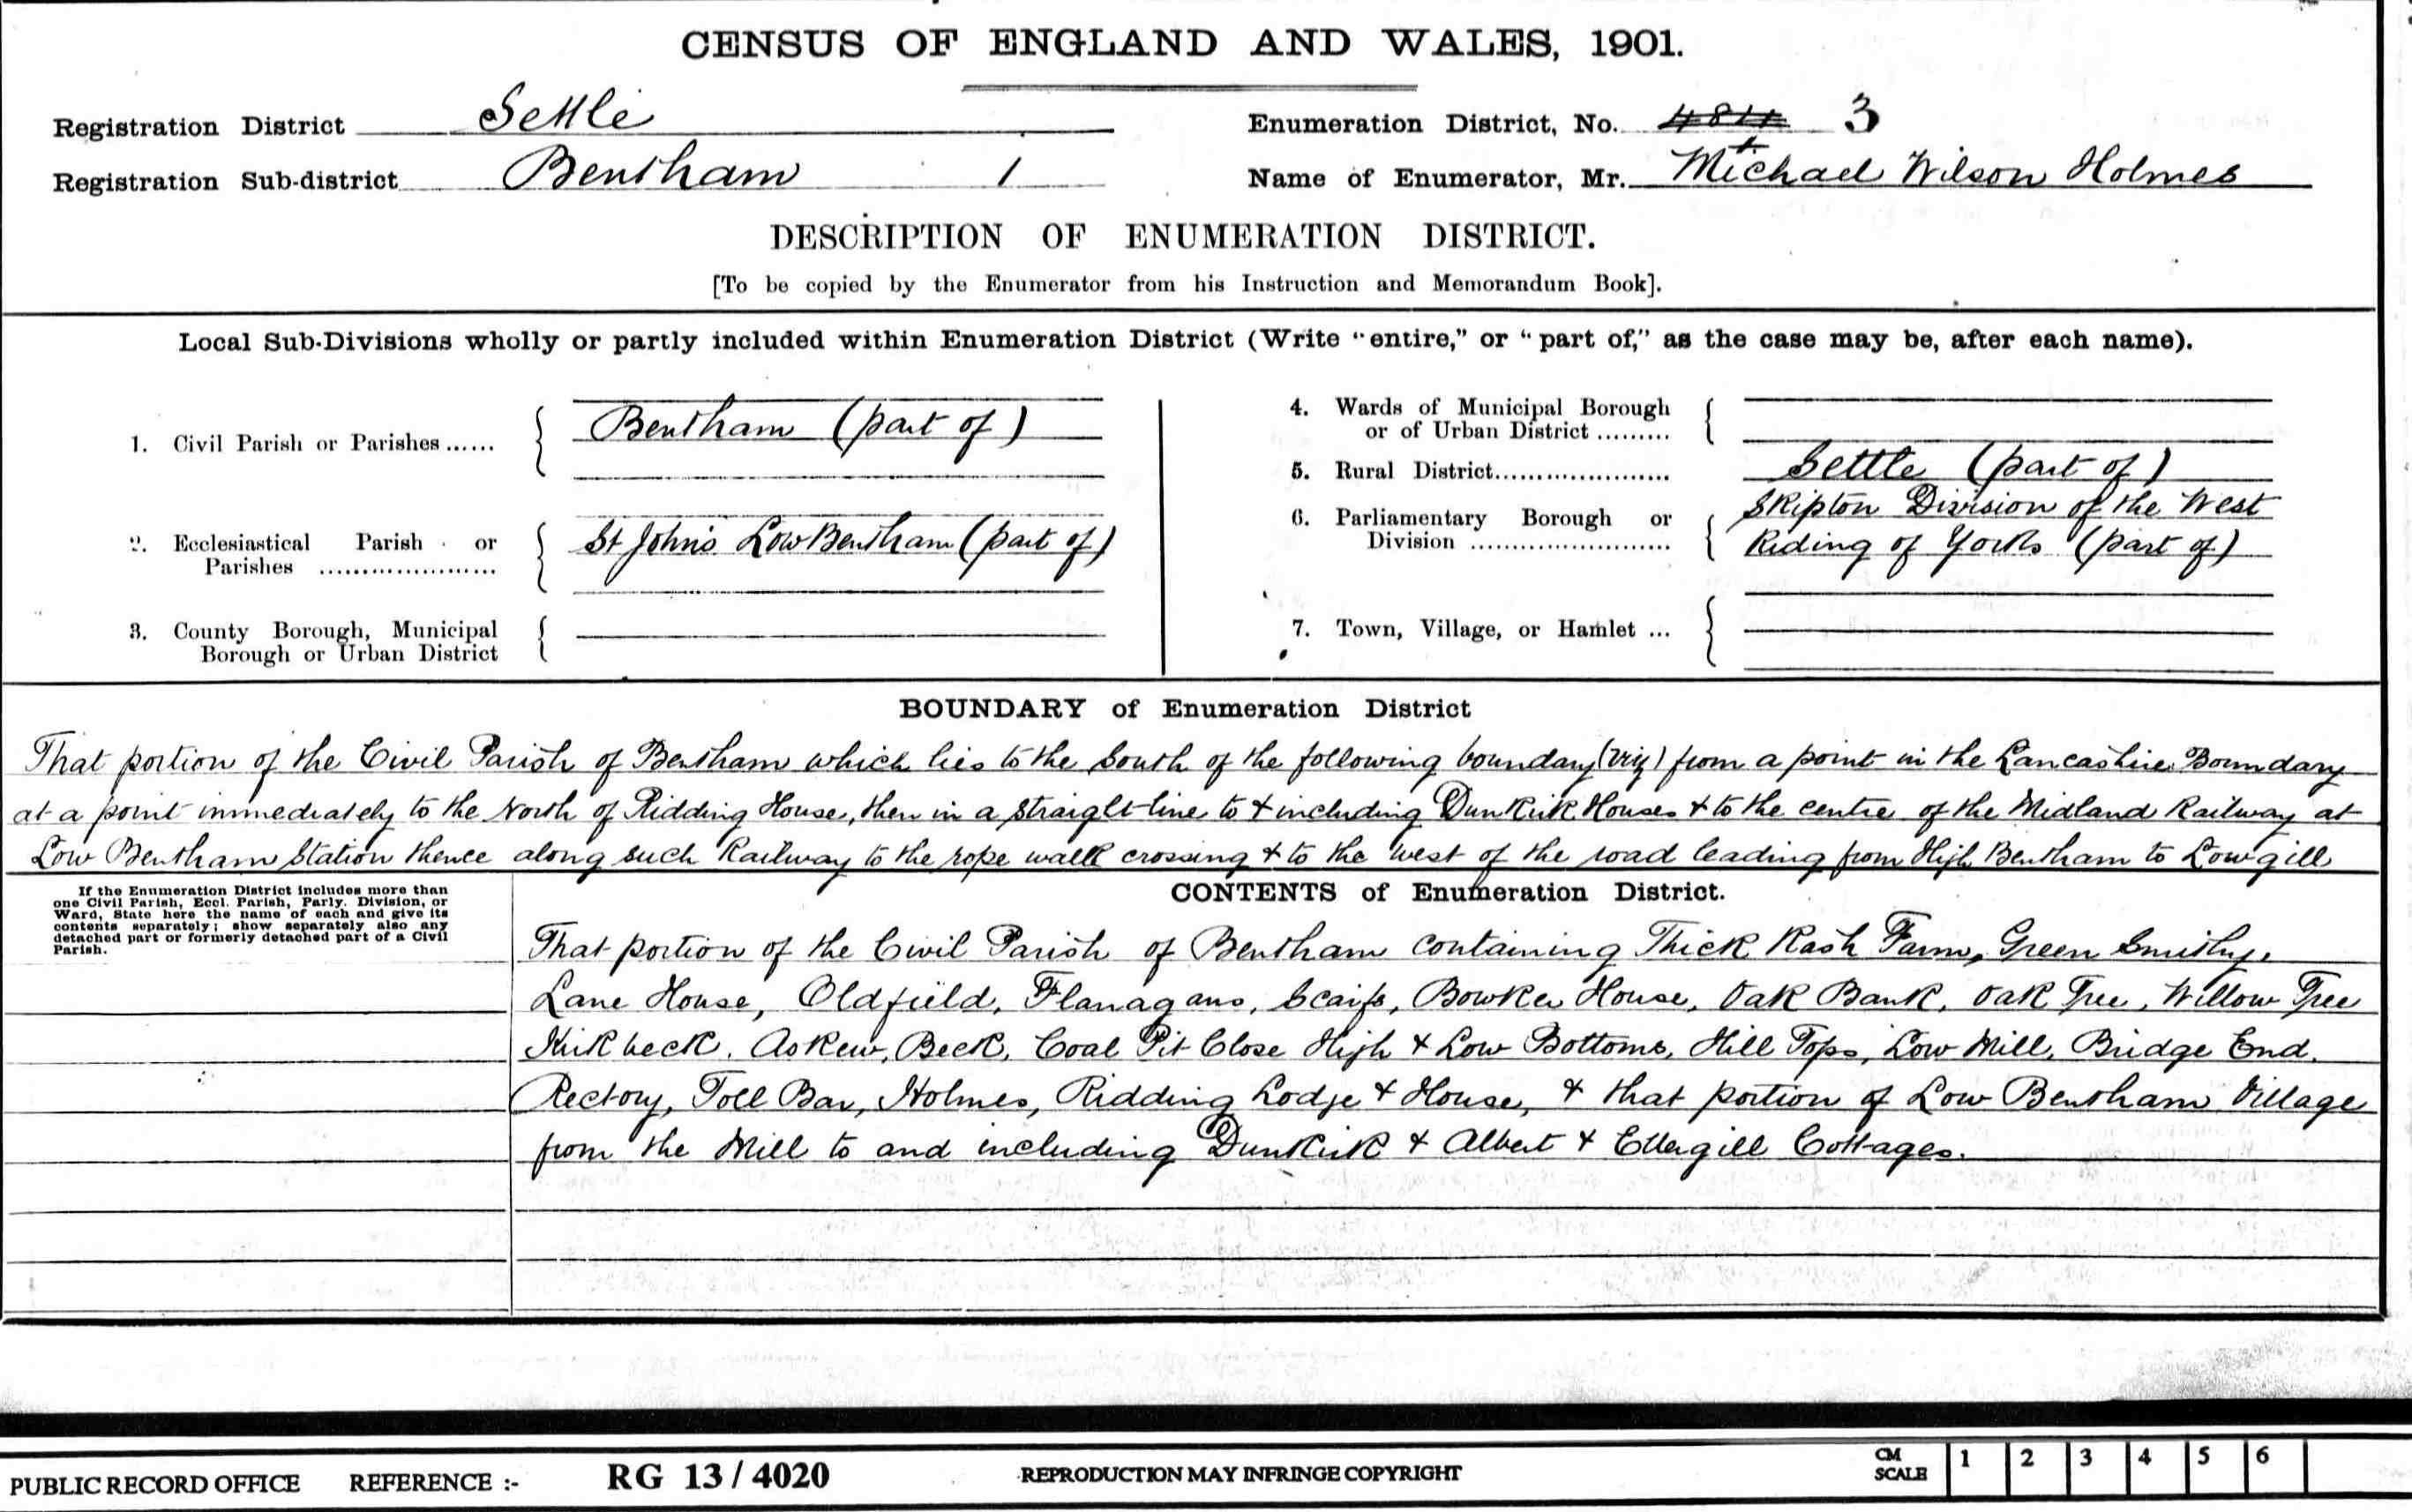 CENSUS OF ENGLAND AND WALES, 1901.
Registration District Settle
Enumeration District, No. 3
Registration Sub-district Bentham 1
Name of Enumerator, Mr. Michael Wilson Holmes
DESCRIPTION OF ENUMERATION DISTRICT.
[To be copied by the Enumerator from his Instruction and Memorandum Book].
Local Sub-Divisions wholly or partly included within Enumeration District (Write "entire," or "part of," as the case may be, after each name).
1. Civil Parish or Parishes ...... Bentham (part of)
2. Ecclesiastical Parish or
Parishes ..................... St John's Low Bentham (part of)
3. County Borough, Municipal
Borough or Urban District
4. Wards of Municipal Borough
or of Urban District .........
5. Rural District...................... Settle (part of)
6. Parliamentary Borough or Skipton Division of the West
Division ........................ Riding of Yorks (part of)
7. Town, Village, or Hamlet ...
BOUNDARY of Enumeration District
That portion of the Civil Parish of Bentham which lies to the South of the following boundary (viz) from a point in the Lancashire Boundary
at a point immediately to the North of Ridding House, then in a straight line to & including Dunkirk Houses & to the centre of the Midland Railway at
Low Bentham Station thence along such Railway to the rope walk crossing & to the West of the road leading from High Bentham to Lowgill
If the Enumeration District includes more than
one Civil Parish, Eccl. Parish, Parly. Division, or
Ward, State here the name of each and give its
contents separately; show separately also any
detached part or formerly detached part of a Civil
Parish.
CONTENTS of Enumeration District.
That portion of the Civil Parish of Bentham containing Thick Rash Farm, Green Smithy,
Lane House, Oldfield, Flanagans, Scaifs, Bowker House, Oak Bank, Oak Tree, Willow Tree
Kirkbeck, Askew, Beck, Coal Pit Close High & Low Bottoms, Hill Tops, Low Mill, Bridge End,
Rectory, Toll Bar, Holmes, Ridding Lodge & House, & that portion of Low Bentham Village
from the Mill to and including Dunkirk & Albert & Ellergill Cottages.
PUBLIC RECORD OFFICE REFERENCE :- RG 13 / 4020 REPRODUCTION MAY INFRINGE COPYRIGHT CM
SCALE 1 2 3 4 5 6